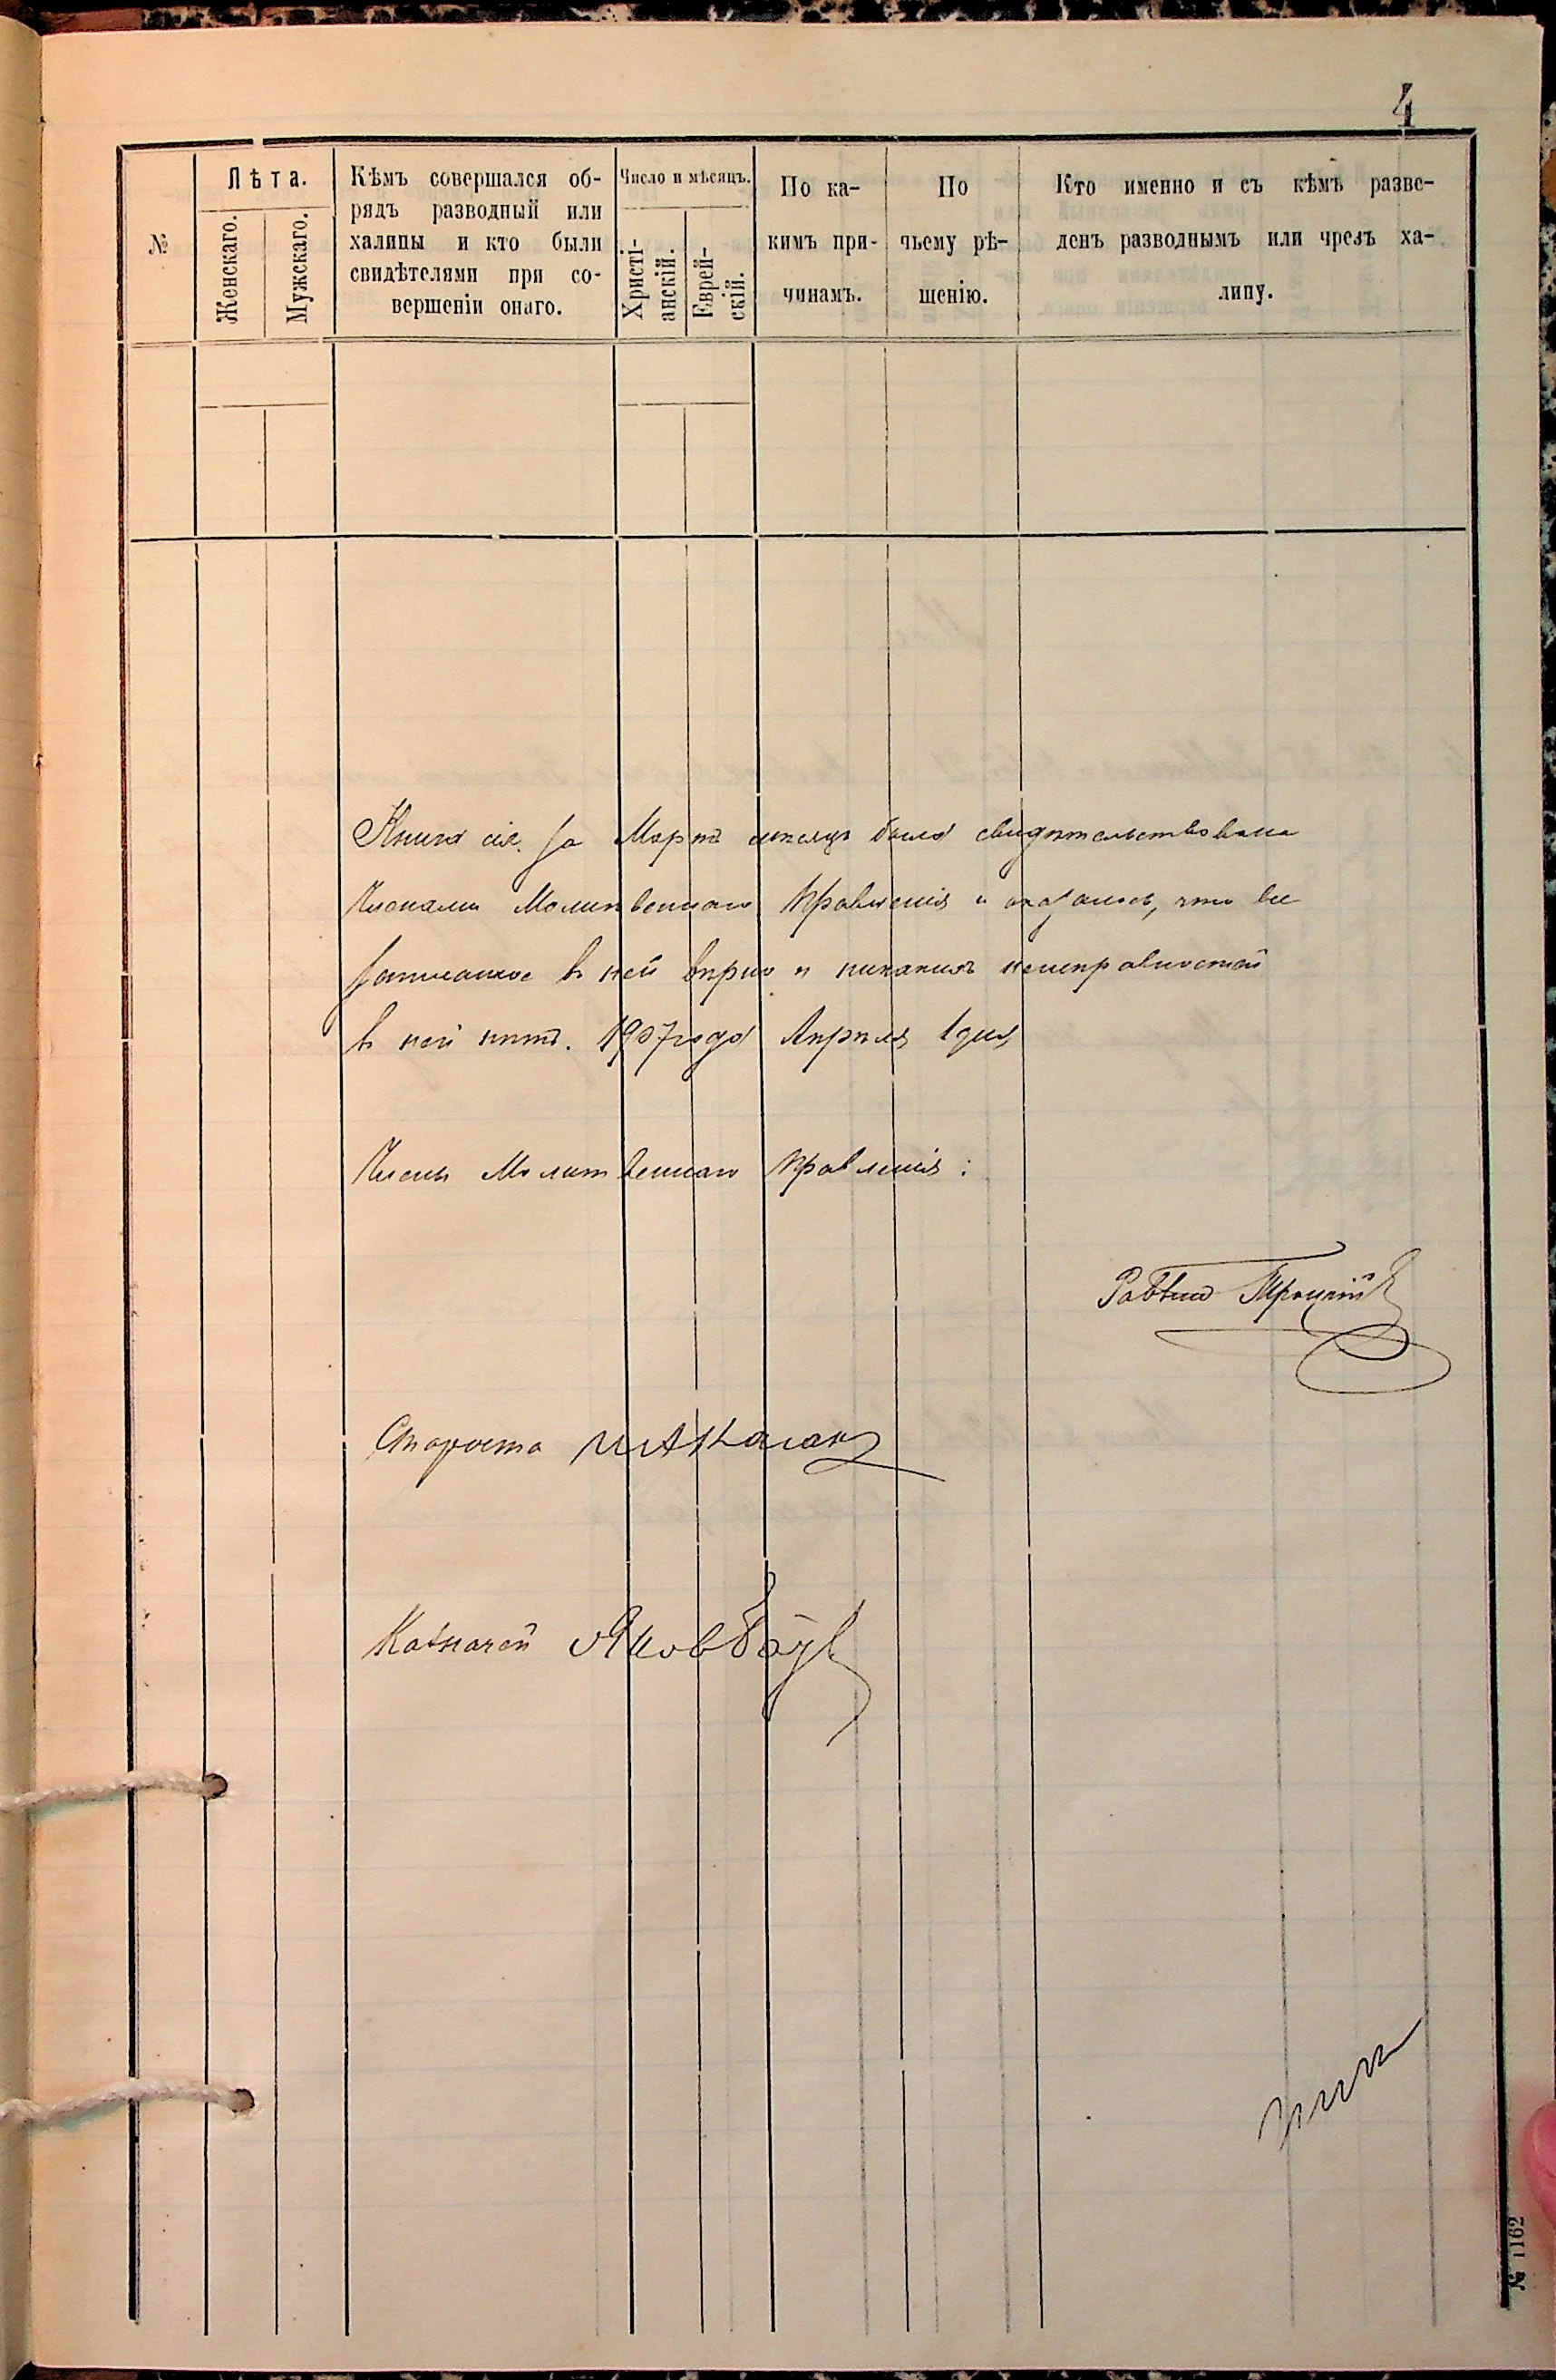 4
№
Лѣта.
Женскаго.
Мужскаго.
Кѣмъ совершался об-
рядъ разводный или
халицы и кто были
свидѣтелями при со-
вершеніи онаго.
Число и мѣсяцъ.
Христі-
анскій.
Еврей-
скій.
По ка-
кимъ при-
чинамъ.
По
чьему рѣ-
шенію.
Кто именно и съ кѣмъ разве-
денъ разводнымъ или чрезъ ха-
лицу.
Книга сія за Мартъ мѣсяцъ была свидѣтельствована
Членами Молитвеннаго Правленія и оказалось, что все
записанное въ ней вѣрно и никакихъ неисправностей
въ ней нѣтъ. 1907 года Апрѣля 1 дня
Члены Молитвеннаго Правленія:
Раввинъ Троцкій
Староста
Казначей Яков
№ 1162